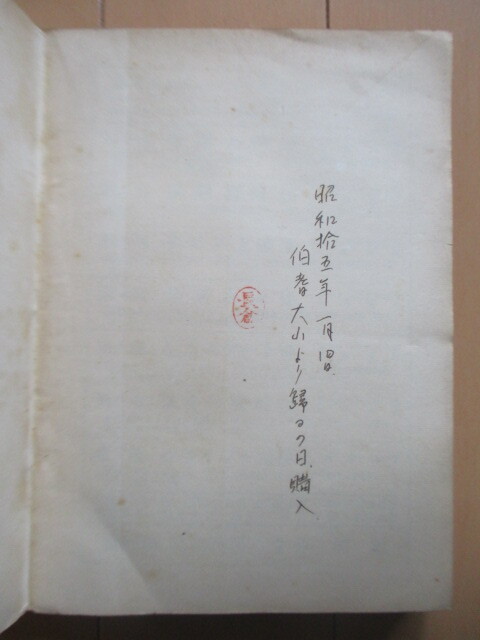 昭和拾五年一月四日
伯耆大山より歸るの日、購入